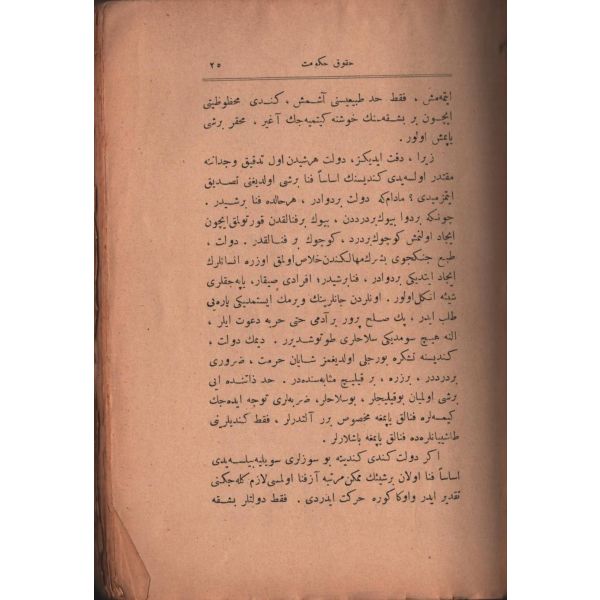 حقوق حكومت ٢٥
ايتمه‌مش ، فقط حد طبيعيسنى آشمش ، كندى محظوظيتى
ايچون بر بشقه‌سنك خوشنه كيتميه‌جك آغير ، محقر برشى
ياپمش اولور .
زيرا ، دقت ايديكز ، دولت هرشيدن اول تدقيق وجداننه
مقتدر اولسه‌يدى كنديسنك اساساً فنا برشى اولديغنى تصديق
ايتمزميدى ؟ مادام‌كه دولت بردوادر ، هر حالده فنا برشيدر .
چونكه بردوا بيوك بردرددن ، بيوك برفنالقدن قورتولمق ايچون
ايجاد اولنمش كوچوك بردرد ، كوچوك بر فنالقدر . دولت ،
طبع جنكجوى بشرك مهالكندن خلاص اولمق اوزره انسانلرك
ايجاد ايتديكى بردوادر ، فنا برشيدر ؛ افرادى صيقار ، ياپه‌جقلرى
شيئه انكل اولور . اونلردن جانلرينك ويرمك ايستمديكى پاره‌يى
طلب ايدر ، پك صلح پرور بر آدمى حتى حربه دعوت ايلر ،
النه هيچ سومديكى سلاحلرى طوتوشديرر . ديمك دولت ،
كنديسنه تشكره بورجلى اولديغمز شايان حرمت ، ضرورى
بردرددر ، برزره ، بر قيليچ مثابه‌سنده‌در . حد ذاتنده ايى
برشى اولميان بوقيليجلر ، بوسلاحلر ، ضربه‌لرى توجه ايده‌جك
كيمسه‌لره فنالق ياپمغه مخصوص برر آلتدرلر ، فقط كنديلرينى
طاشييانلره‌ده فنالق ياپمغه باشلارلر .
اكر دولت كندى كندينه بو سوزلرى سويليه‌بيلسه‌يدى
اساساً فنا اولان برشيئك ممكن مرتبه آز فنا اولمسى لازم كله‌جكنى
تقدير ايدر واوكا كوره حركت ايدردى . فقط دولتلر بشقه